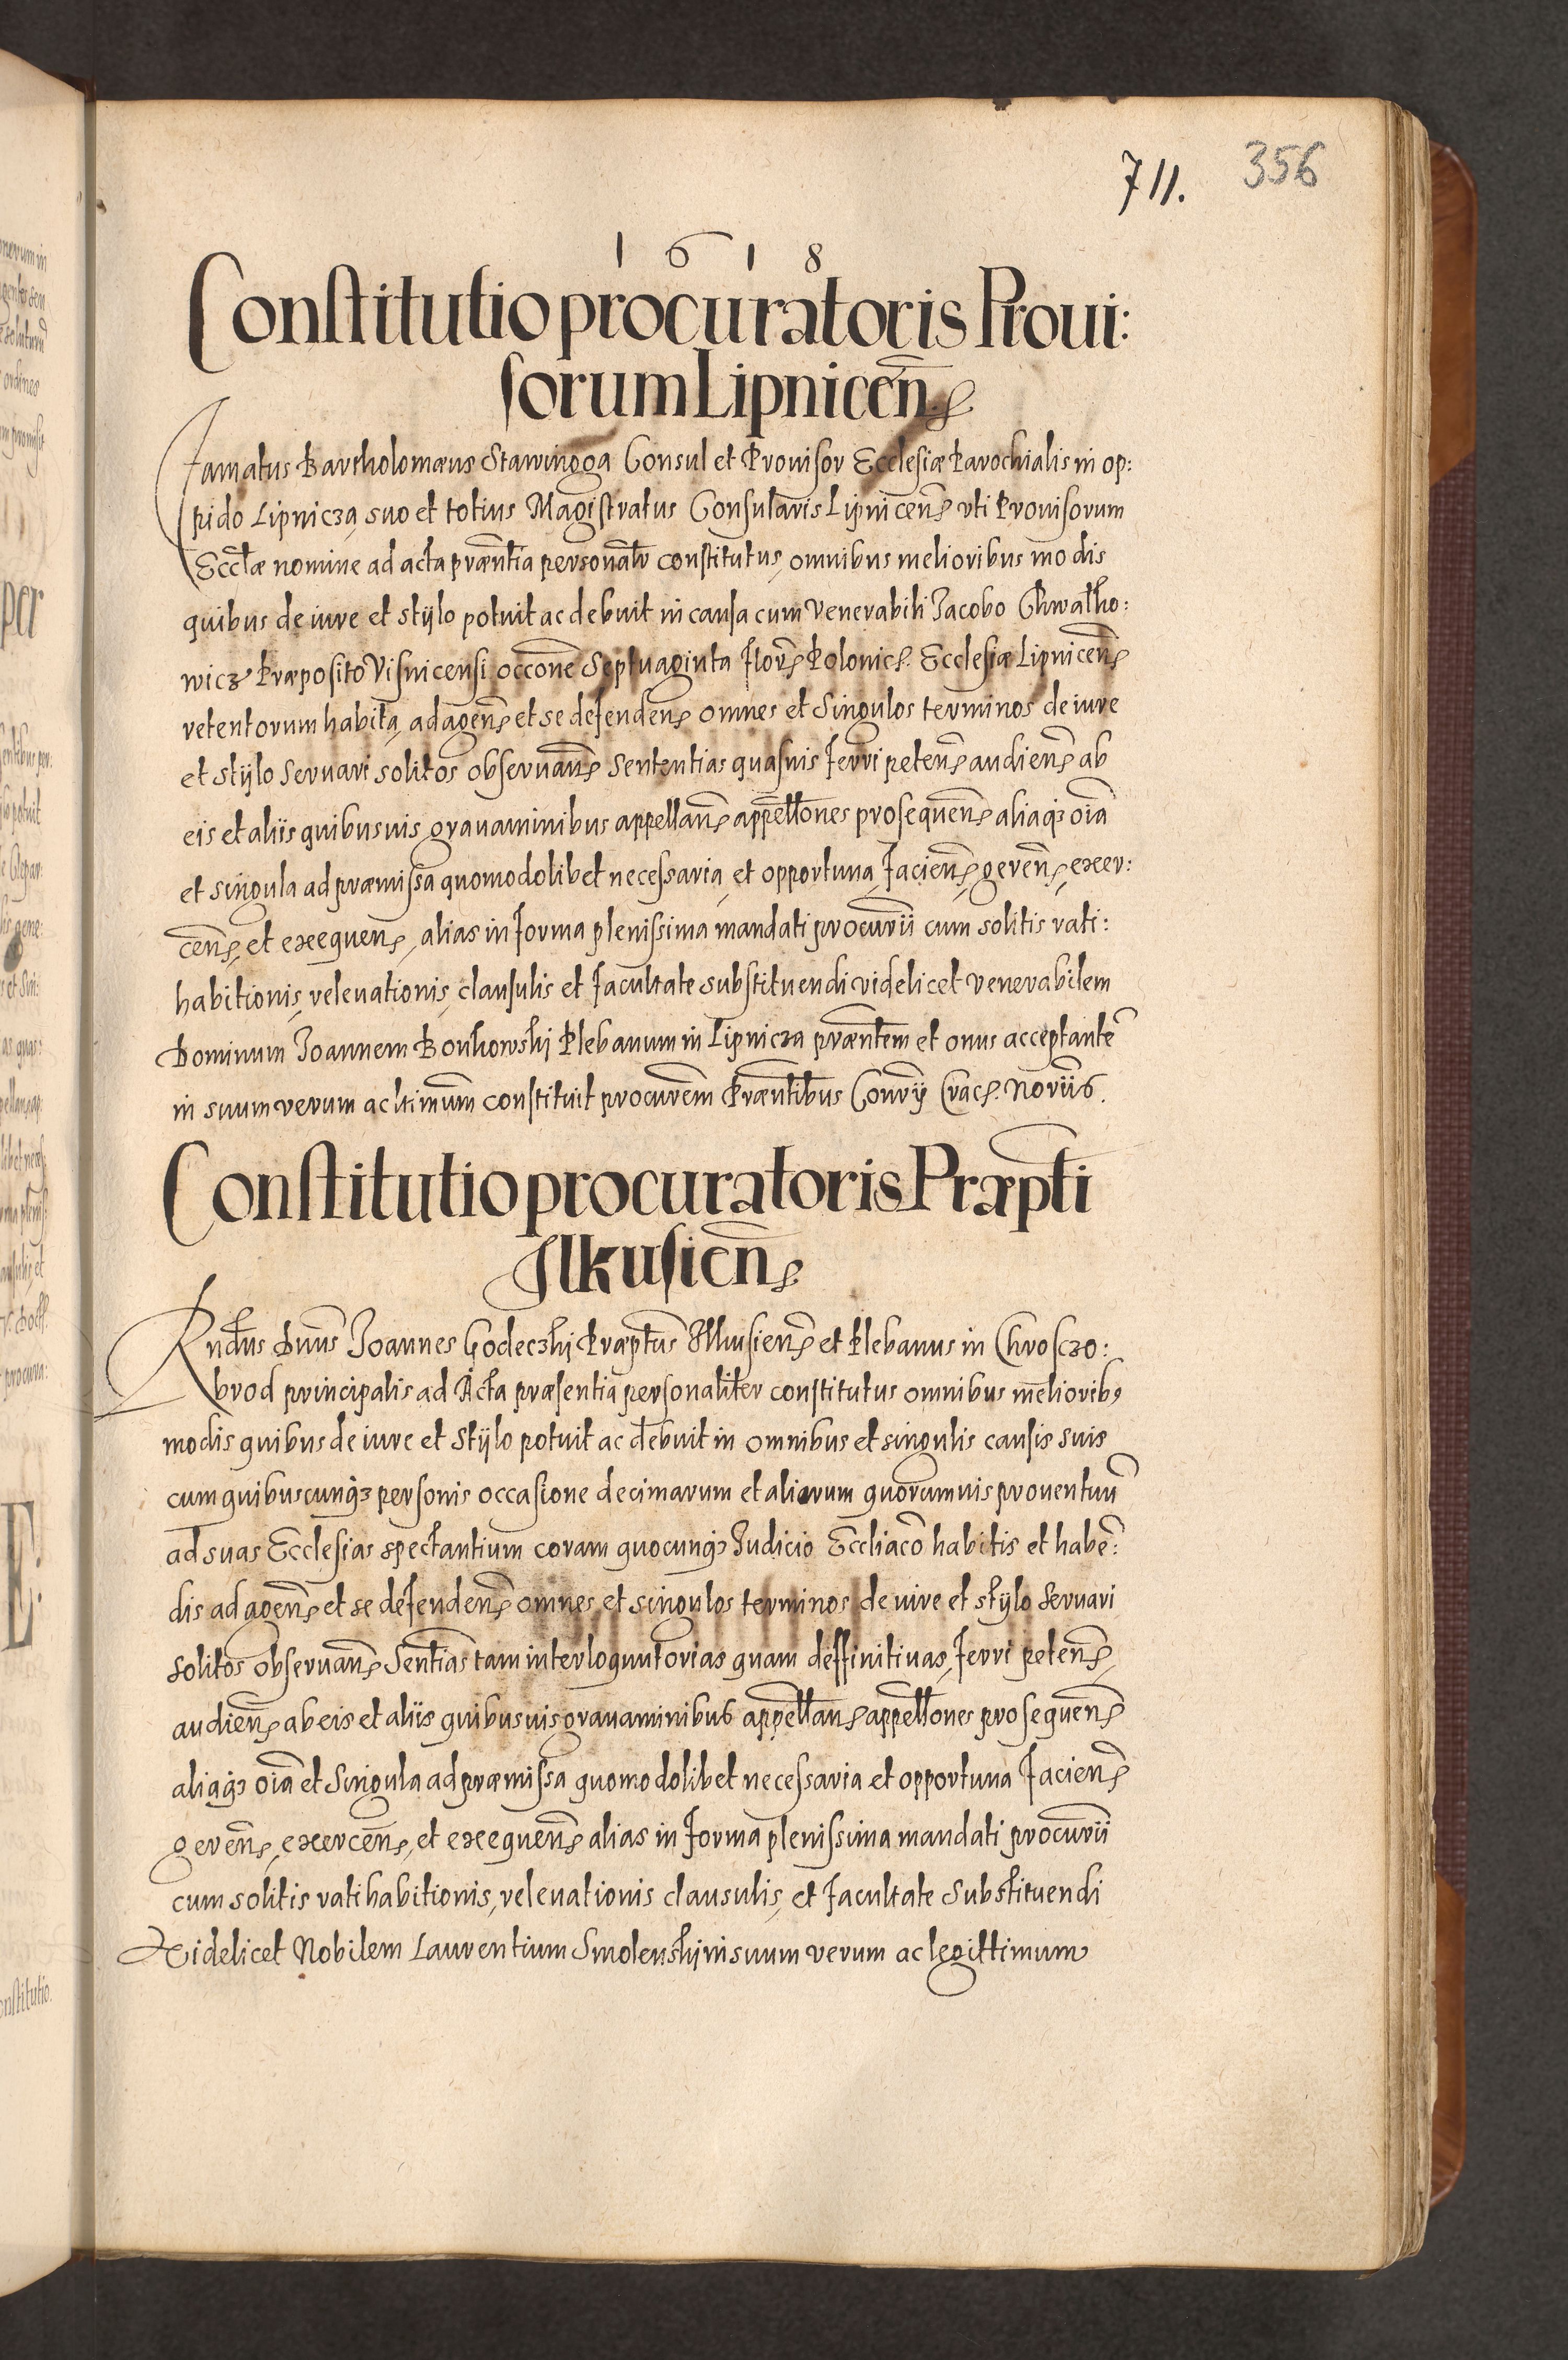 711. 356
1618
Constitutio procuratoris Proui:
sorum Lipnicen̄
Famatus Bartholomæus Stawinoga Consul et Prouisor Ecclesiæ Parochialis in op:
pido Lipnicza, suo et totius Magistratus Consularis Lipnicen̄ vti Prouisorum
Eccl̄æ nomine ad acta præn̄tia personal̄r constitutus, omnibus melioribus modis
quibus de iure et stÿlo potuit ac debuit in causa cum Venerabili Jacobo Chwalko:
wicz Præposito Visnicensi occōne Septuaginta flor̄ Polonic. Ecclesiæ Lipnicen̄
retentorum habita, ad agen̄ et se defenden̄ omnes et singulos terminos de iure
et stÿlo seruari solitos obseruan̄ sententias quasuis ferri peten̄ audien̄ ab
eis et aliis quibusuis grauaminibus appellan̄ appell̄ones prosequen̄ aliaq3 oīa
et singula ad præmissa quomodolibet necessaria, et opportuna, facien̄, geren̄, exer:
cen̄, et exequen̄, alias in forma plenissima mandati procur̄ii cum solitis rati:
habitionis, releuationis, clausulis et facultate substituendi videlicet Venerabilem
Dominum Joannem Bonkowski Plebanum in Lipnicza præn̄tem et onus acceptantē
in suum verum ac l̄timum constituit procur̄em Præn̄tibus Conrÿ Crac. Nor̄iis.
Constitutio procuratoris Præp̄ti
Ilkusien̄
Rnd̄us Dn̄us Joannes Godeczki Præpt̄us Ilkusien̄ et Plebanus in Chroſczo:
brod principalis ad Acta præsentia personaliter constitutus omnibus meliorib9
modis quibus de iure et Stÿlo potuit ac debuit in omnibus et singulis causis suis
cum quibuscunq3 personis occasione decimarum et aliorum quorumuis prouentuū
ad suas Ecclesias spectantium coram quocunq3 Judicio Eccl̄iaco habitis et habē:
dis ad agen̄ et se defenden̄ omnes et singulos terminos de iure et stÿlo seruari
solitos obseruan̄ Sent̄ias tam interloquutorias quam deffinitiuas, ferri peten̄,
audien̄ ab eis et aliis quibusuis grauaminibus appellan̄ appell̄ones prosequen̄
aliaq3 oīa et Singula ad præmissa quomodolibet necessaria et opportuna facien̄
geren̄, exercen̄, et exequen̄ alias in forma plenissima mandati procur̄ii
cum solitis ratihabitionis, releuationis clausulis, et facultate Substituendi
Videlicet Nobilem Laurentium Smolenski in suum verum ac legittimum